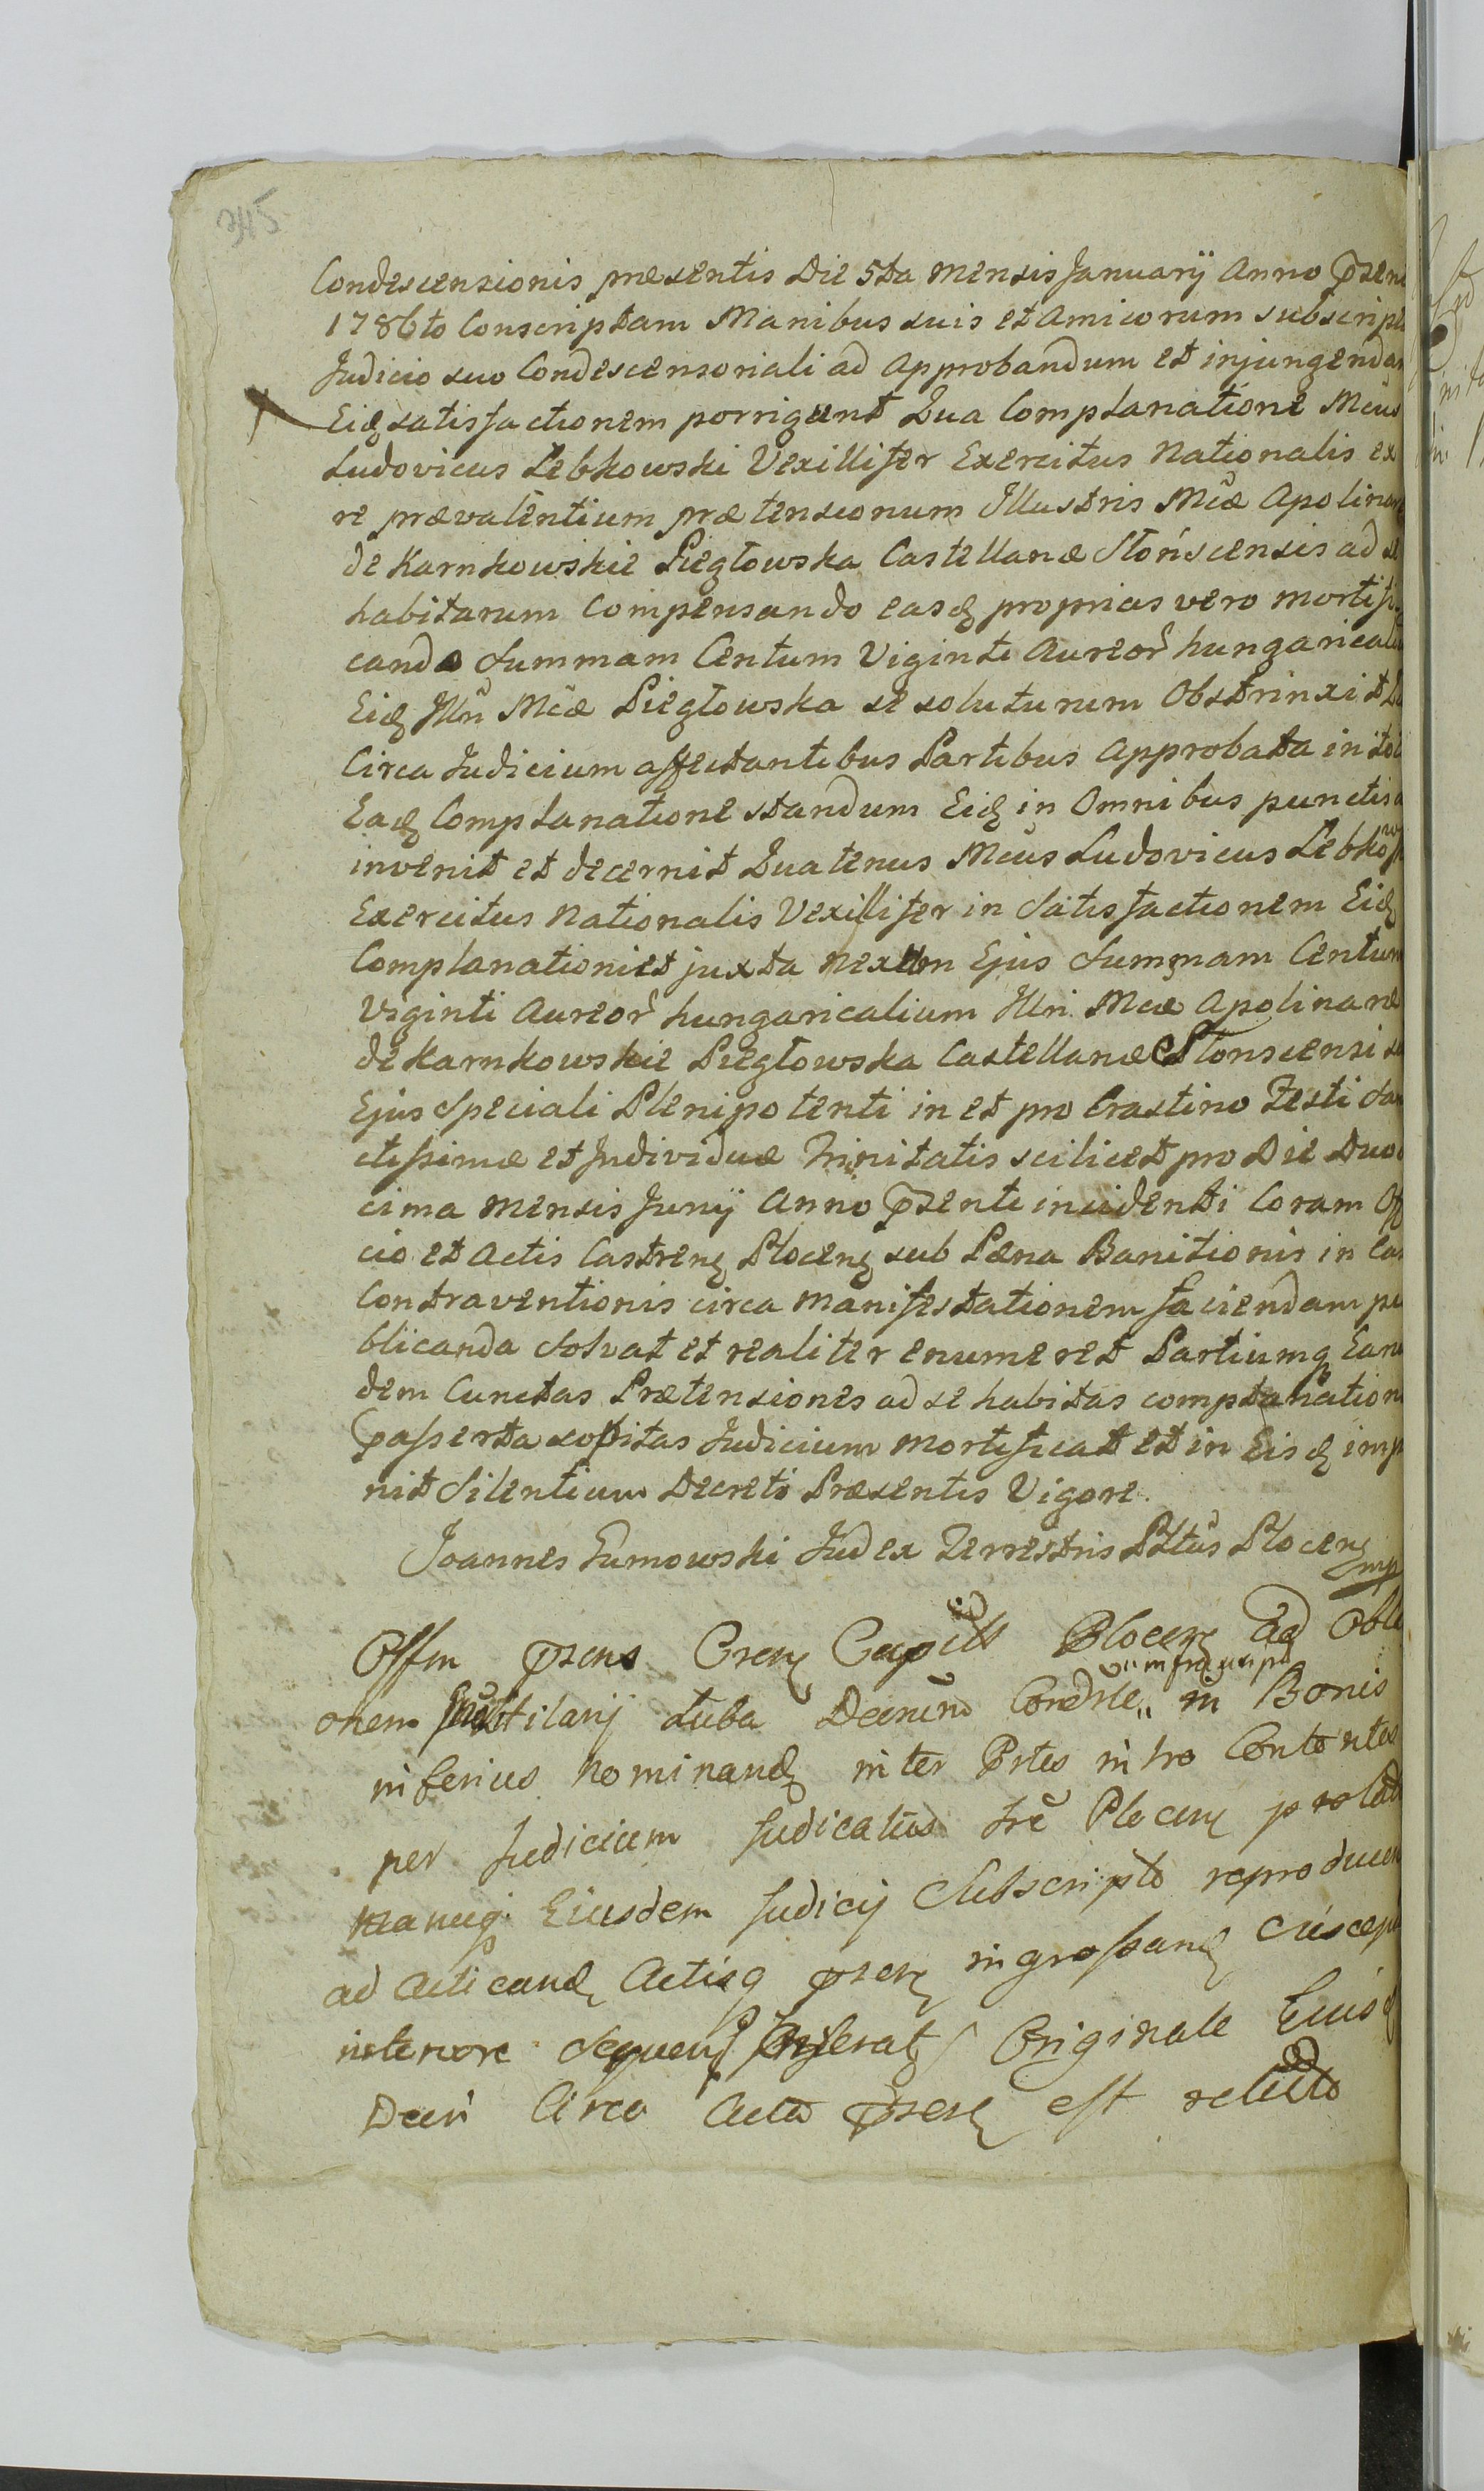 345
Condescensionis præsentis Die 5ta Mensis Januarij Anno p̃sen
1786to Conscriptam Manibus suis et Amicorum subscrip
Judicio suo Condescensoriali ad Approbandum et injungendam
Eidę satisfactionem porrigunt Qua Complanatione Mcus
Ludovicus Lebkowski Vexillifer Exercitus Nationalis ex
re prævalentium prætensionum Illustris Mcæ Apolinar
de Karnkowskie Piegłowska Castellanæ Słońscensis ad se
habitarum Compensando easdę proprias vero mortifi
cando Summam Centum Viginti Aureor̃ hungarical
Eidę Illri Mcæ Piegłowska se soluturum Obstrinxit
Circa Judicium affectantibus Partibus Approbata in
Eadę Complanatione standum Eidę in Omnibus punctis
invenit et decernit Quatenus Mcus Ludovicus Lebkow
Exercitus Nationalis Vexillifer in Satisfactionem Eidę
Complanationi et juxta nexum Ejus Summam Centum
Viginti Aureor̃ hungaricalium Illri Mcæ Apolinaræ
de Karnkowskie Piegłowska Castellanæ Słonscensi
Ejus Speciali Plenipotenti in et pro Crastino Festi San
ctissimæ et Individuæ Trinitatis scilicet pro Die Duo
cima Mensis Junij Anno p̃senti incidenti Coram Offi
cio et Actis Castrenę Plocenę sub Pæna Banitionis in Ca
Contraventionis circa Manifestationem faciendam pu
blicanda Solvat et realiter enumeret Partiumq Earu
dem Cunctas Prætensiones ad se habitas complanation
p̃asserta sopitas Judicium Mortificat et in Eisdę imp
nit Silentium Decreti Præsentis Vigore.
Joannes Sumowski Judex Terrestris Pltũs Plocenę
mp
Offm p̃sens Crenę Capitt Plocenę ad Obla
onem
infrascripti
Decrum Condsle in Bonis
inferius Nominandę inter Ptes intro Contentas
per Judicium Judicatus tre Plocenę prolat
Manuq Eiusdem Judicij Subscripto reproducen
ad Acticandę Actisq p̃senę ingrossandę Suscep
Originale Eiusdę
Decri Circa Acta p̃senę est relicto